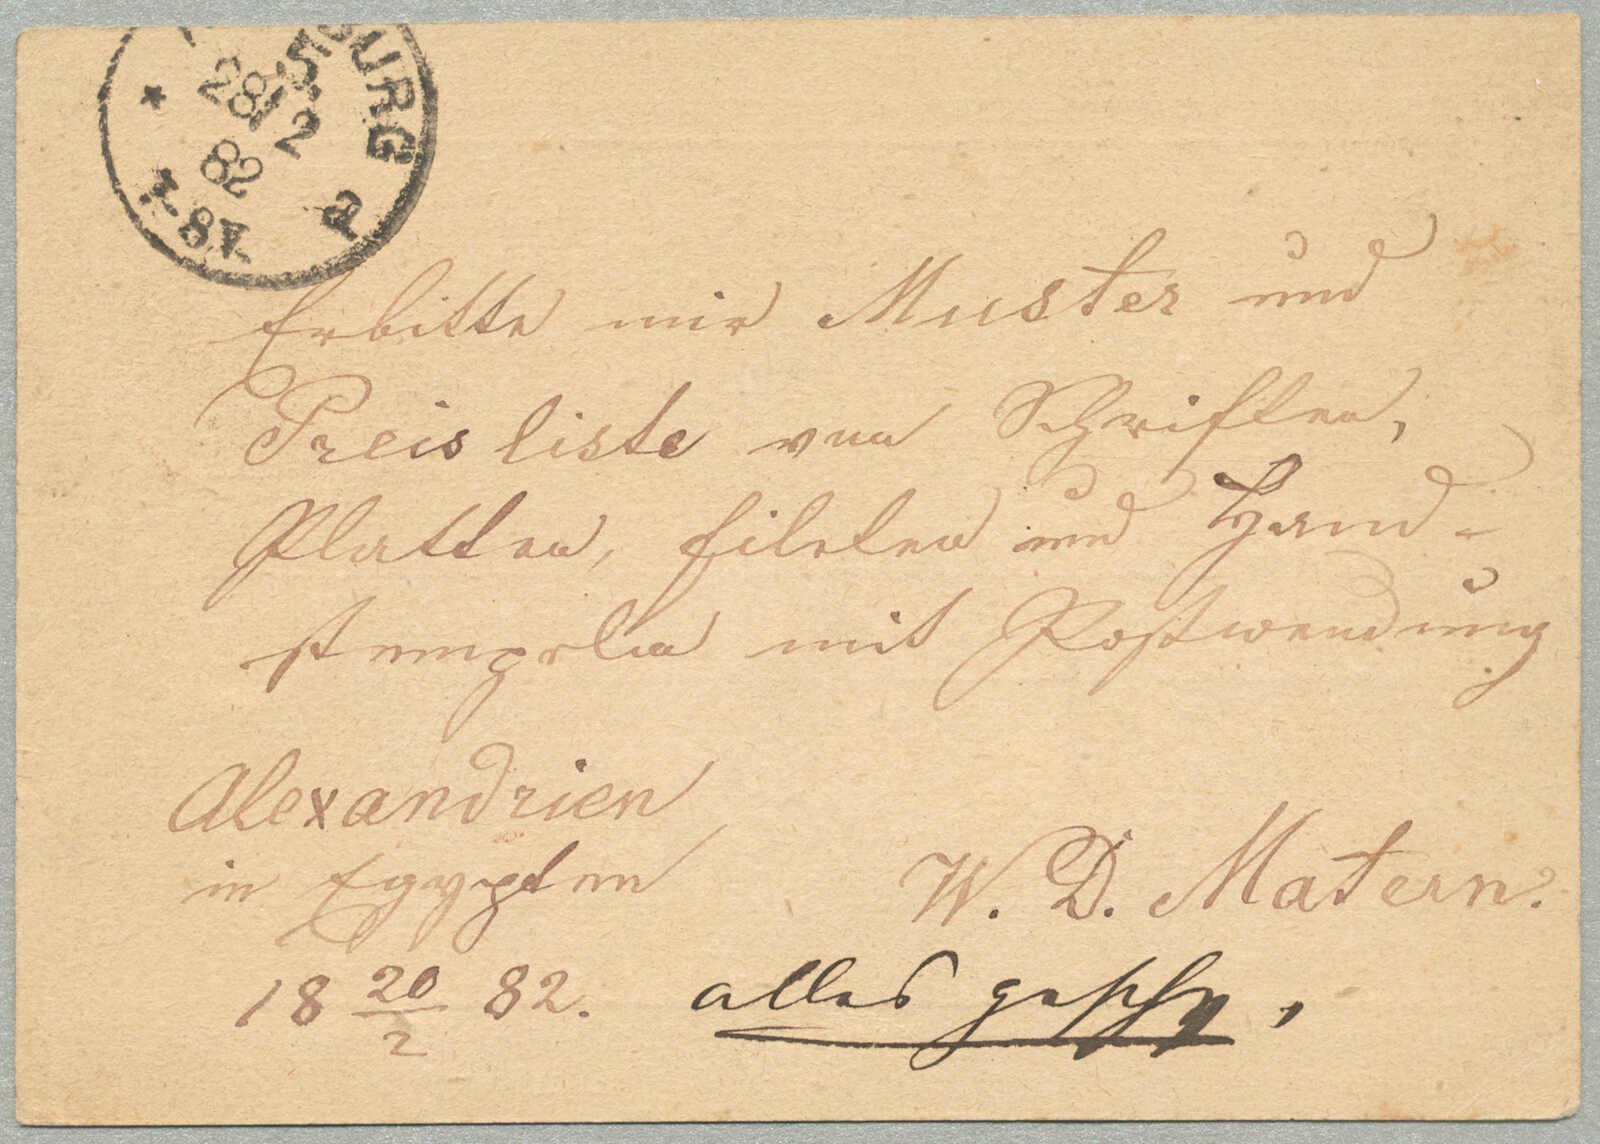 BURG
28/2
82
7-8V.
a
Erbitte mir Muster und
Preisliste von Schriften,
Platten, Fileten und Hand-
stempeln mit Postwendung
Alexandrien
in Egypten
18 20/2 82.
W. D. Matern.
alles